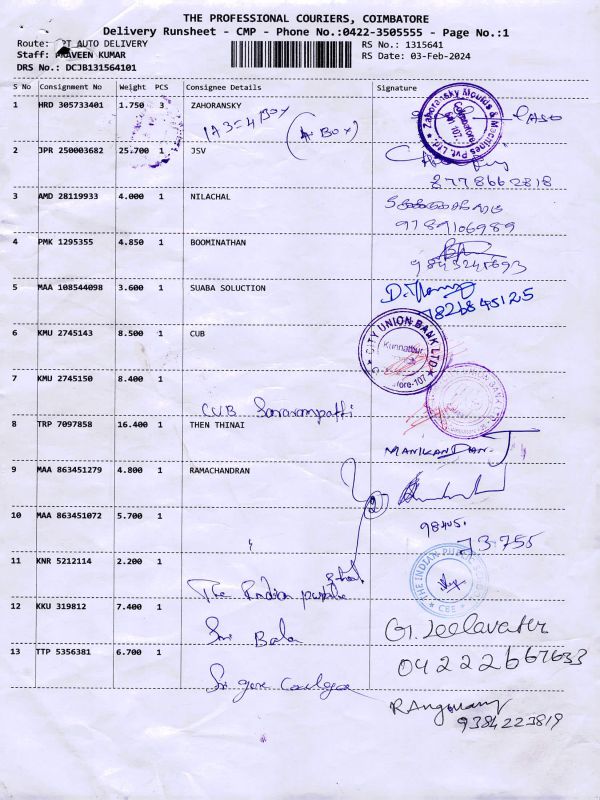 THE PROFESSIONAL COURIERS, COIMBATORE
Delivery Runsheet - CMP - Phone No.:0422-3505555 - Page No.:1
Route: AUTO DELIVERY
RS No.: 1315641
Staff: PRAVEEN KUMAR
RS Date: 03-Feb-2024
DRS No.: DCJB131564101
S No Consignment No Weight PCS Consignee Details Signature
1 HRD 305733401 1.750 3 ZAHORANSKY
1A3=4 Box
(4 Box)
Zahoransky Moulds & Machines Pvt. Ltd.
Coimbatore
2 JPR 250003682 25.700 1 JSV
8778662818
3 AMD 28119933 4.000 1 NILACHAL
9789106989
4 PMK 1295355 4.850 1 BOOMINATHAN
9843245693
5 MAA 108544098 3.600 1 SUABA SOLUCTION
6 KMU 2745143 8.500 1 CUB
CITY UNION BANK LTD
Kunnattur
7 KMU 2745150 8.400 1
CUB Saravampatti
8 TRP 7097858 16.400 1 THEN THINAI
MANIKANDAN.
9 MAA 863451279 4.800 1 RAMACHANDRAN
2
10 MAA 863451072 5.700 1
98405.
73755
11 KNR 5212114 2.200 1
The Indian public
THE INDIAN PUBLIC
CBE
12 KKU 319812 7.400 1
Sri Bala
G. Leelavathi
13 TTP 5356381 6.700 1
04222667633
Sri
9384223819